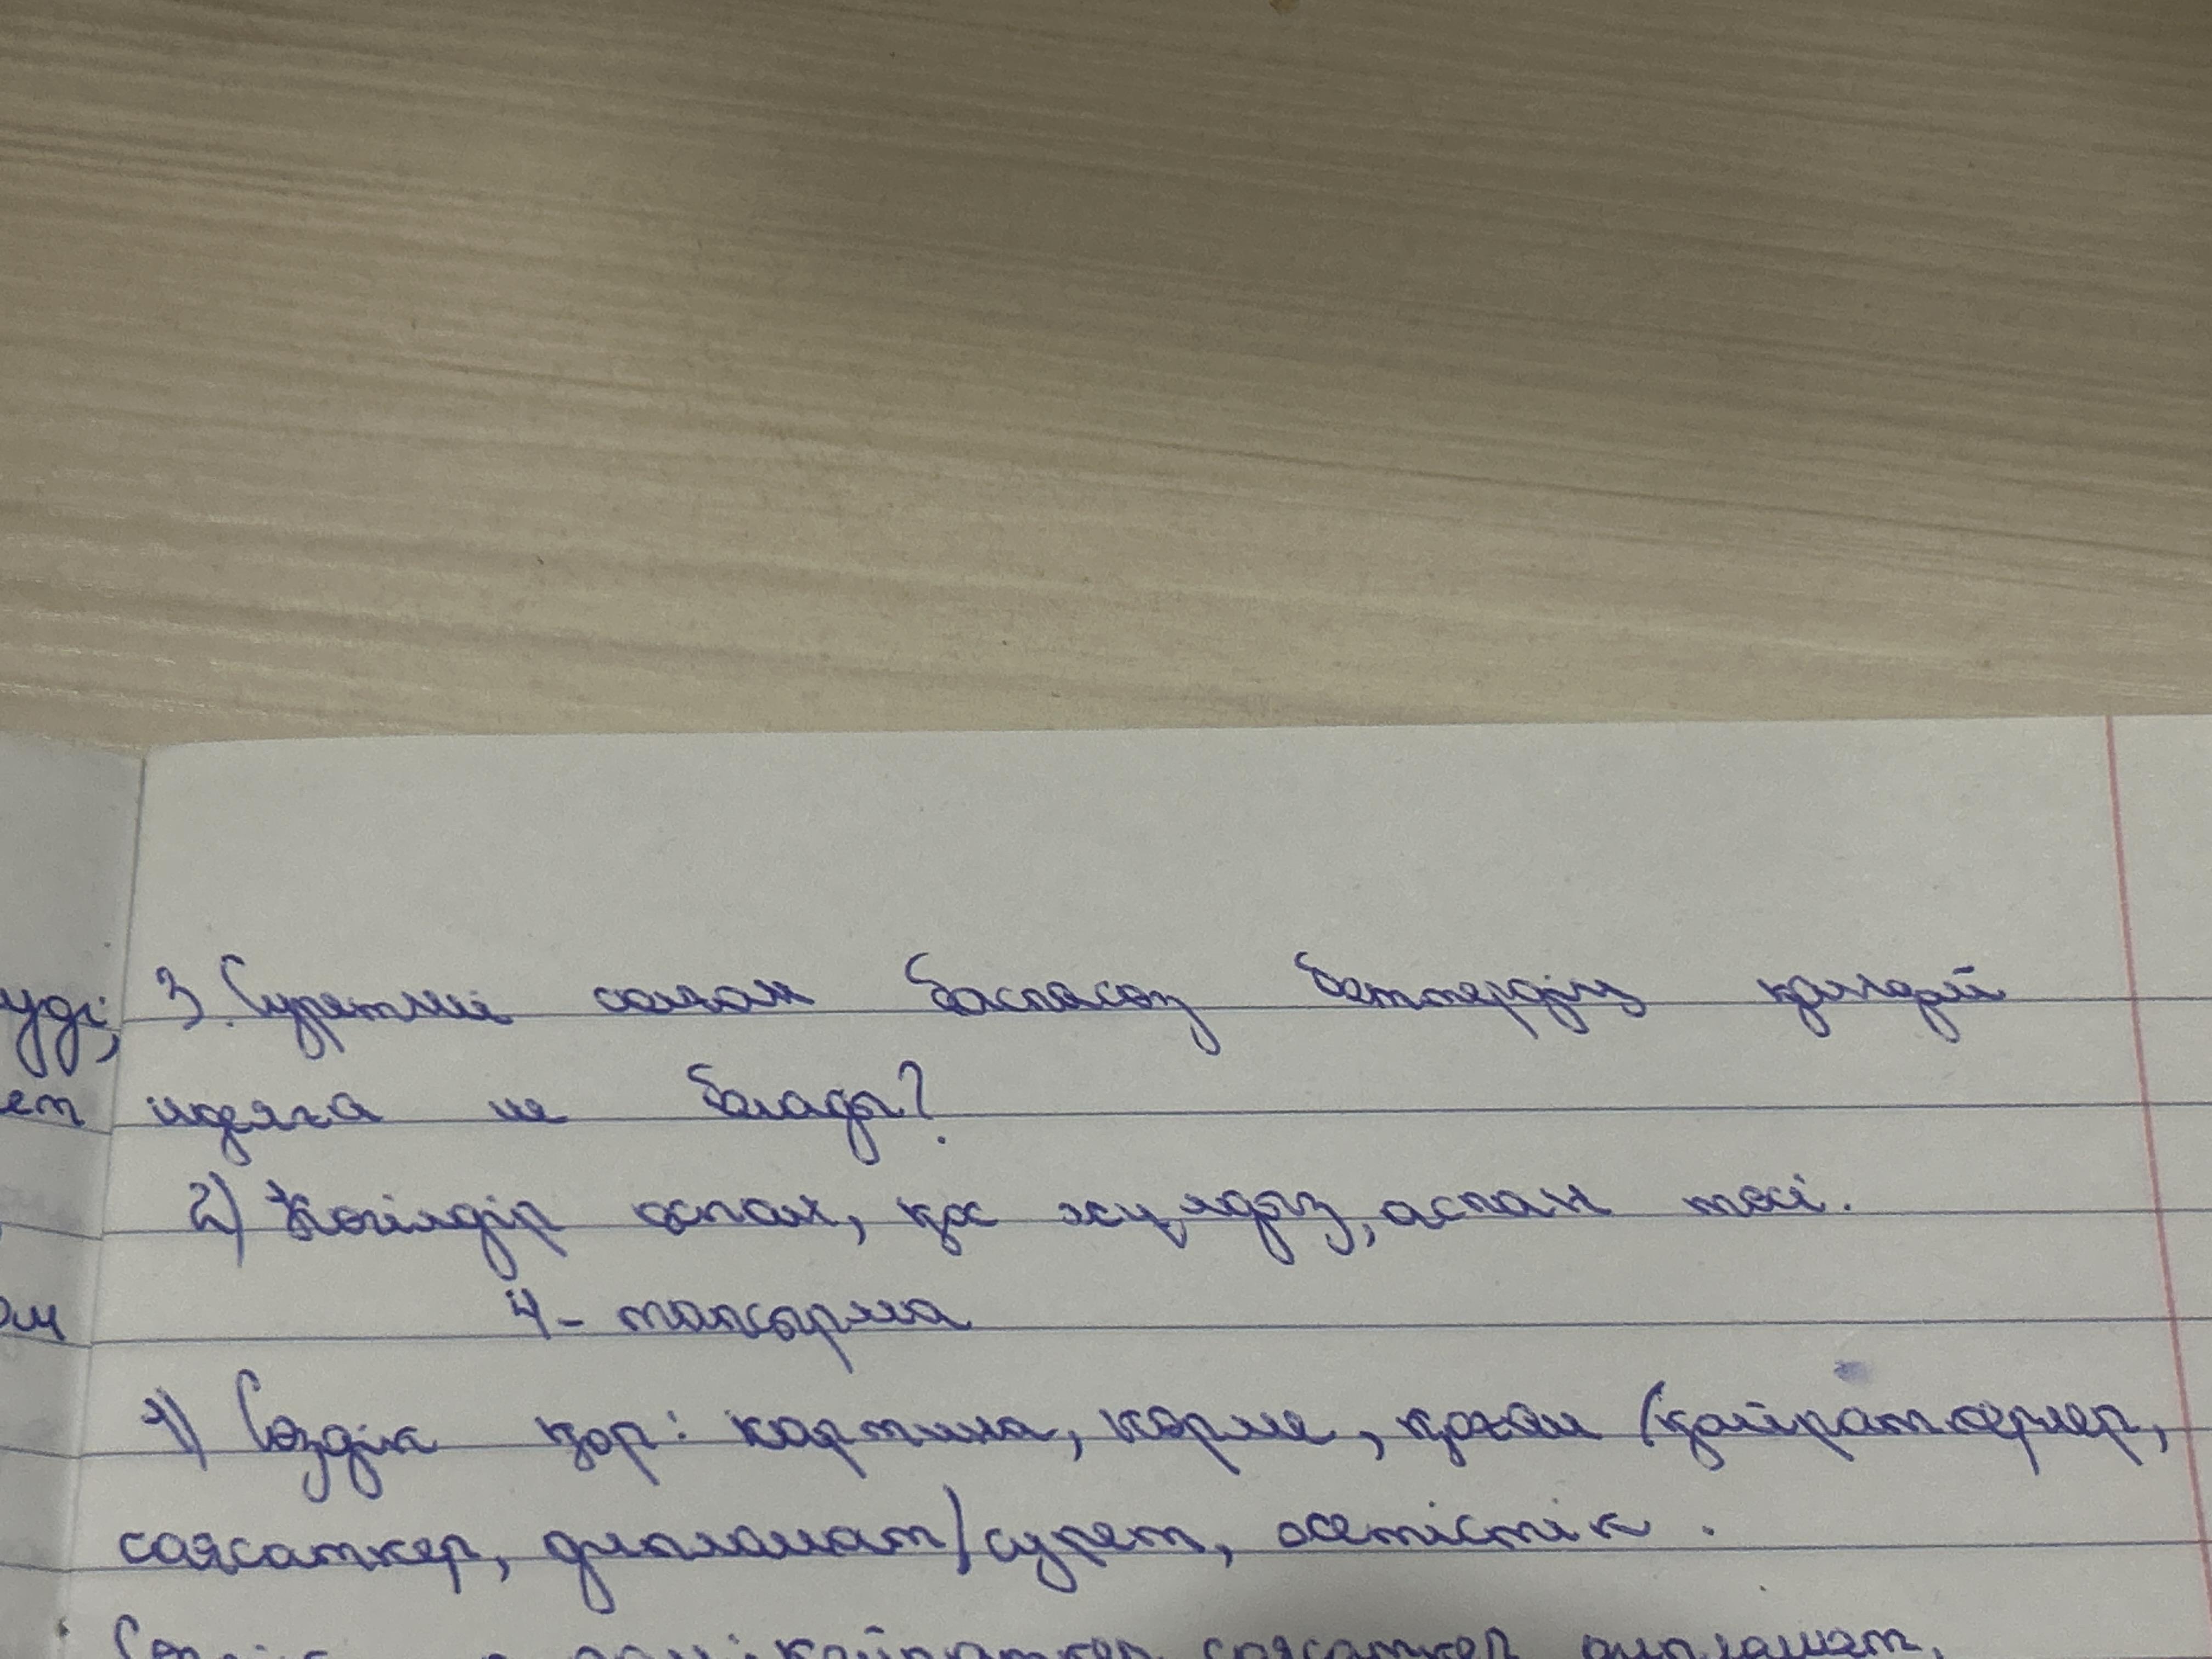 уді, 3. Суретші соған баспасөз беттердің қандай
ет идеяға не болады?
2) Көгілдір аспан, қос жұлдыз, аспан төсі.
ом 4 - тапсырма
1) Сөздік қор: картина, көрме, қоғам (қайраткерлер,
саясаткер, дипломат) сурет, жетістік.
қайраткер саясаткер дипломат,